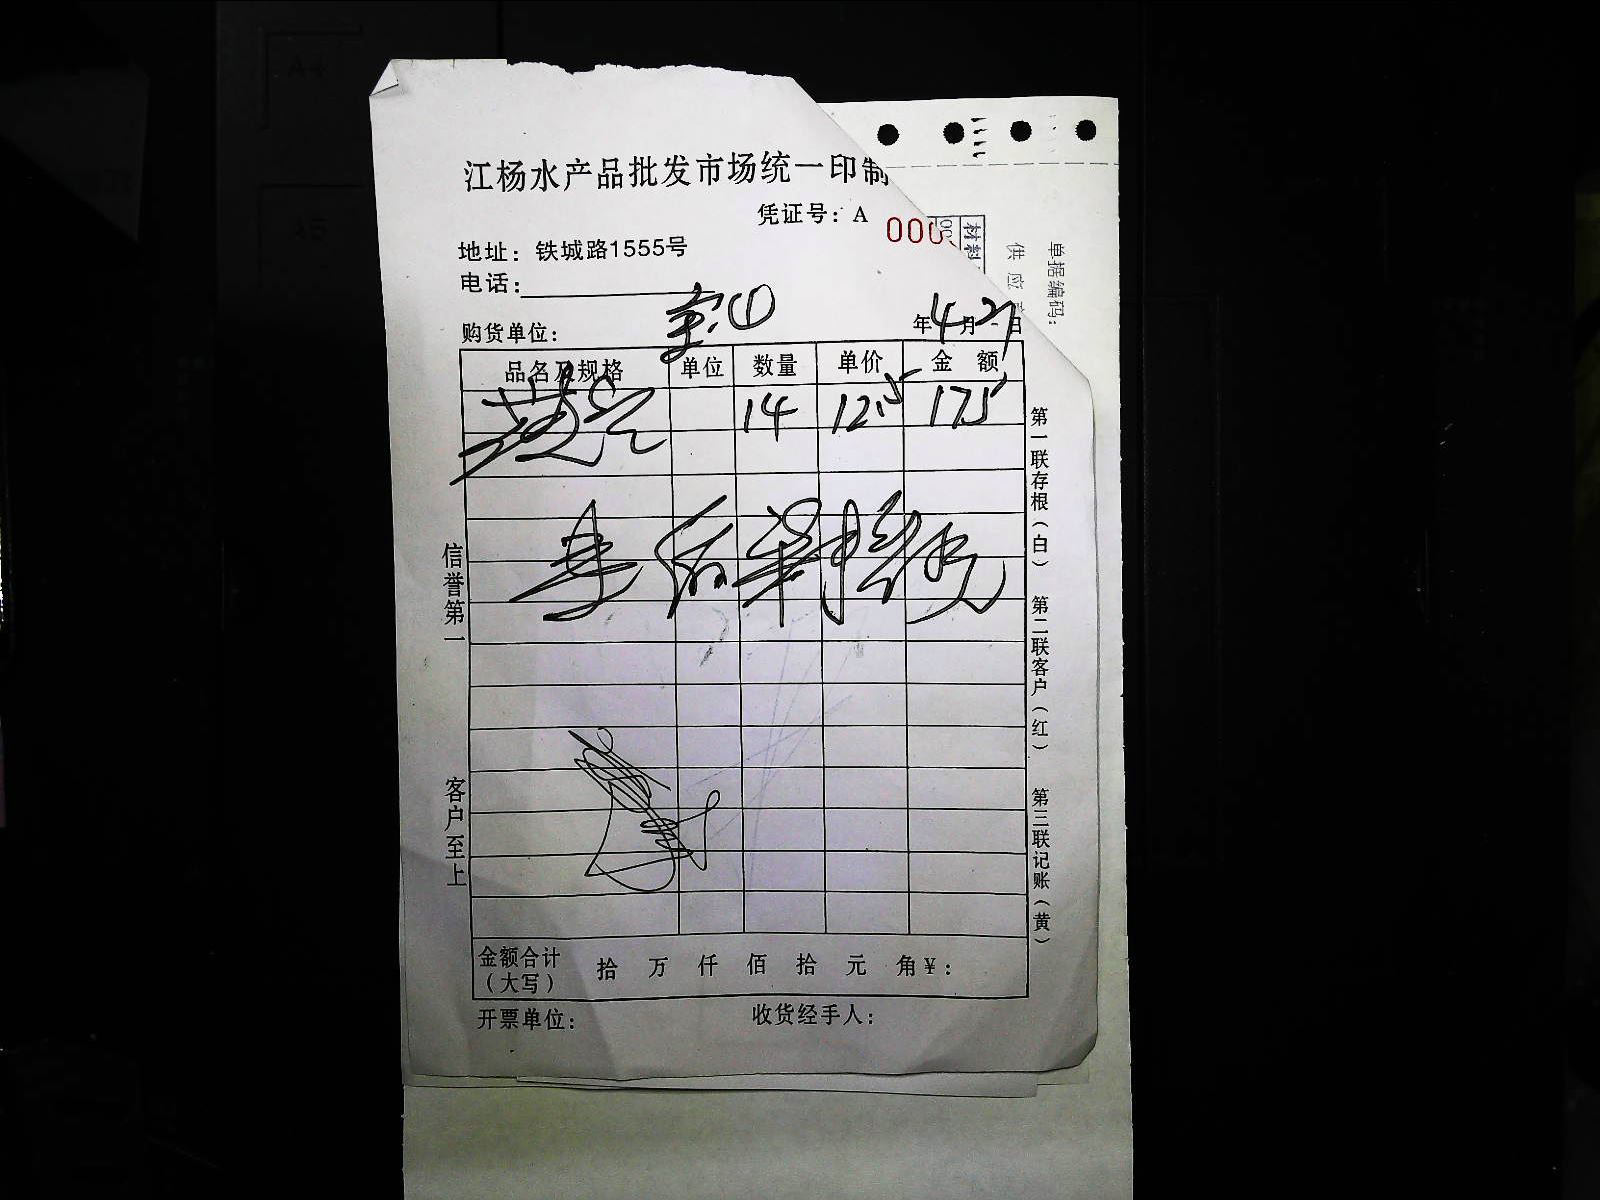 江杨水产品批发市场统一印制
凭证号：A 000
地址：铁城路1555号
电话：
购货单位：
年4月21日
品名及规格 单位 数量 单价 金额
14 12.5 175
信誉第一
客户至上
第一联存根（白） 第二联客户（红） 第三联记账（黄）
金额合计（大写） 拾 万 仟 佰 拾 元 角 ¥：
开票单位： 收货经手人：
材料
供应
单据编码：